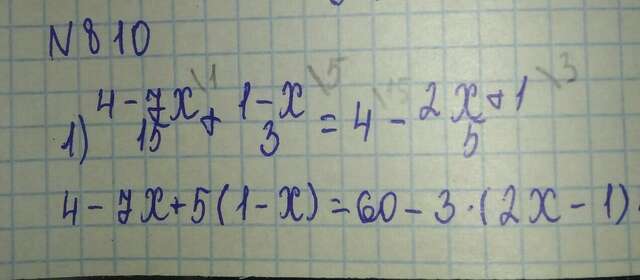 N 810
1) 4-7x\1 / 15 + 1-x\5 / 3 = 4\15 - 2x+1\3 / 5
4-7x+5(1-x)=60-3·(2x-1)